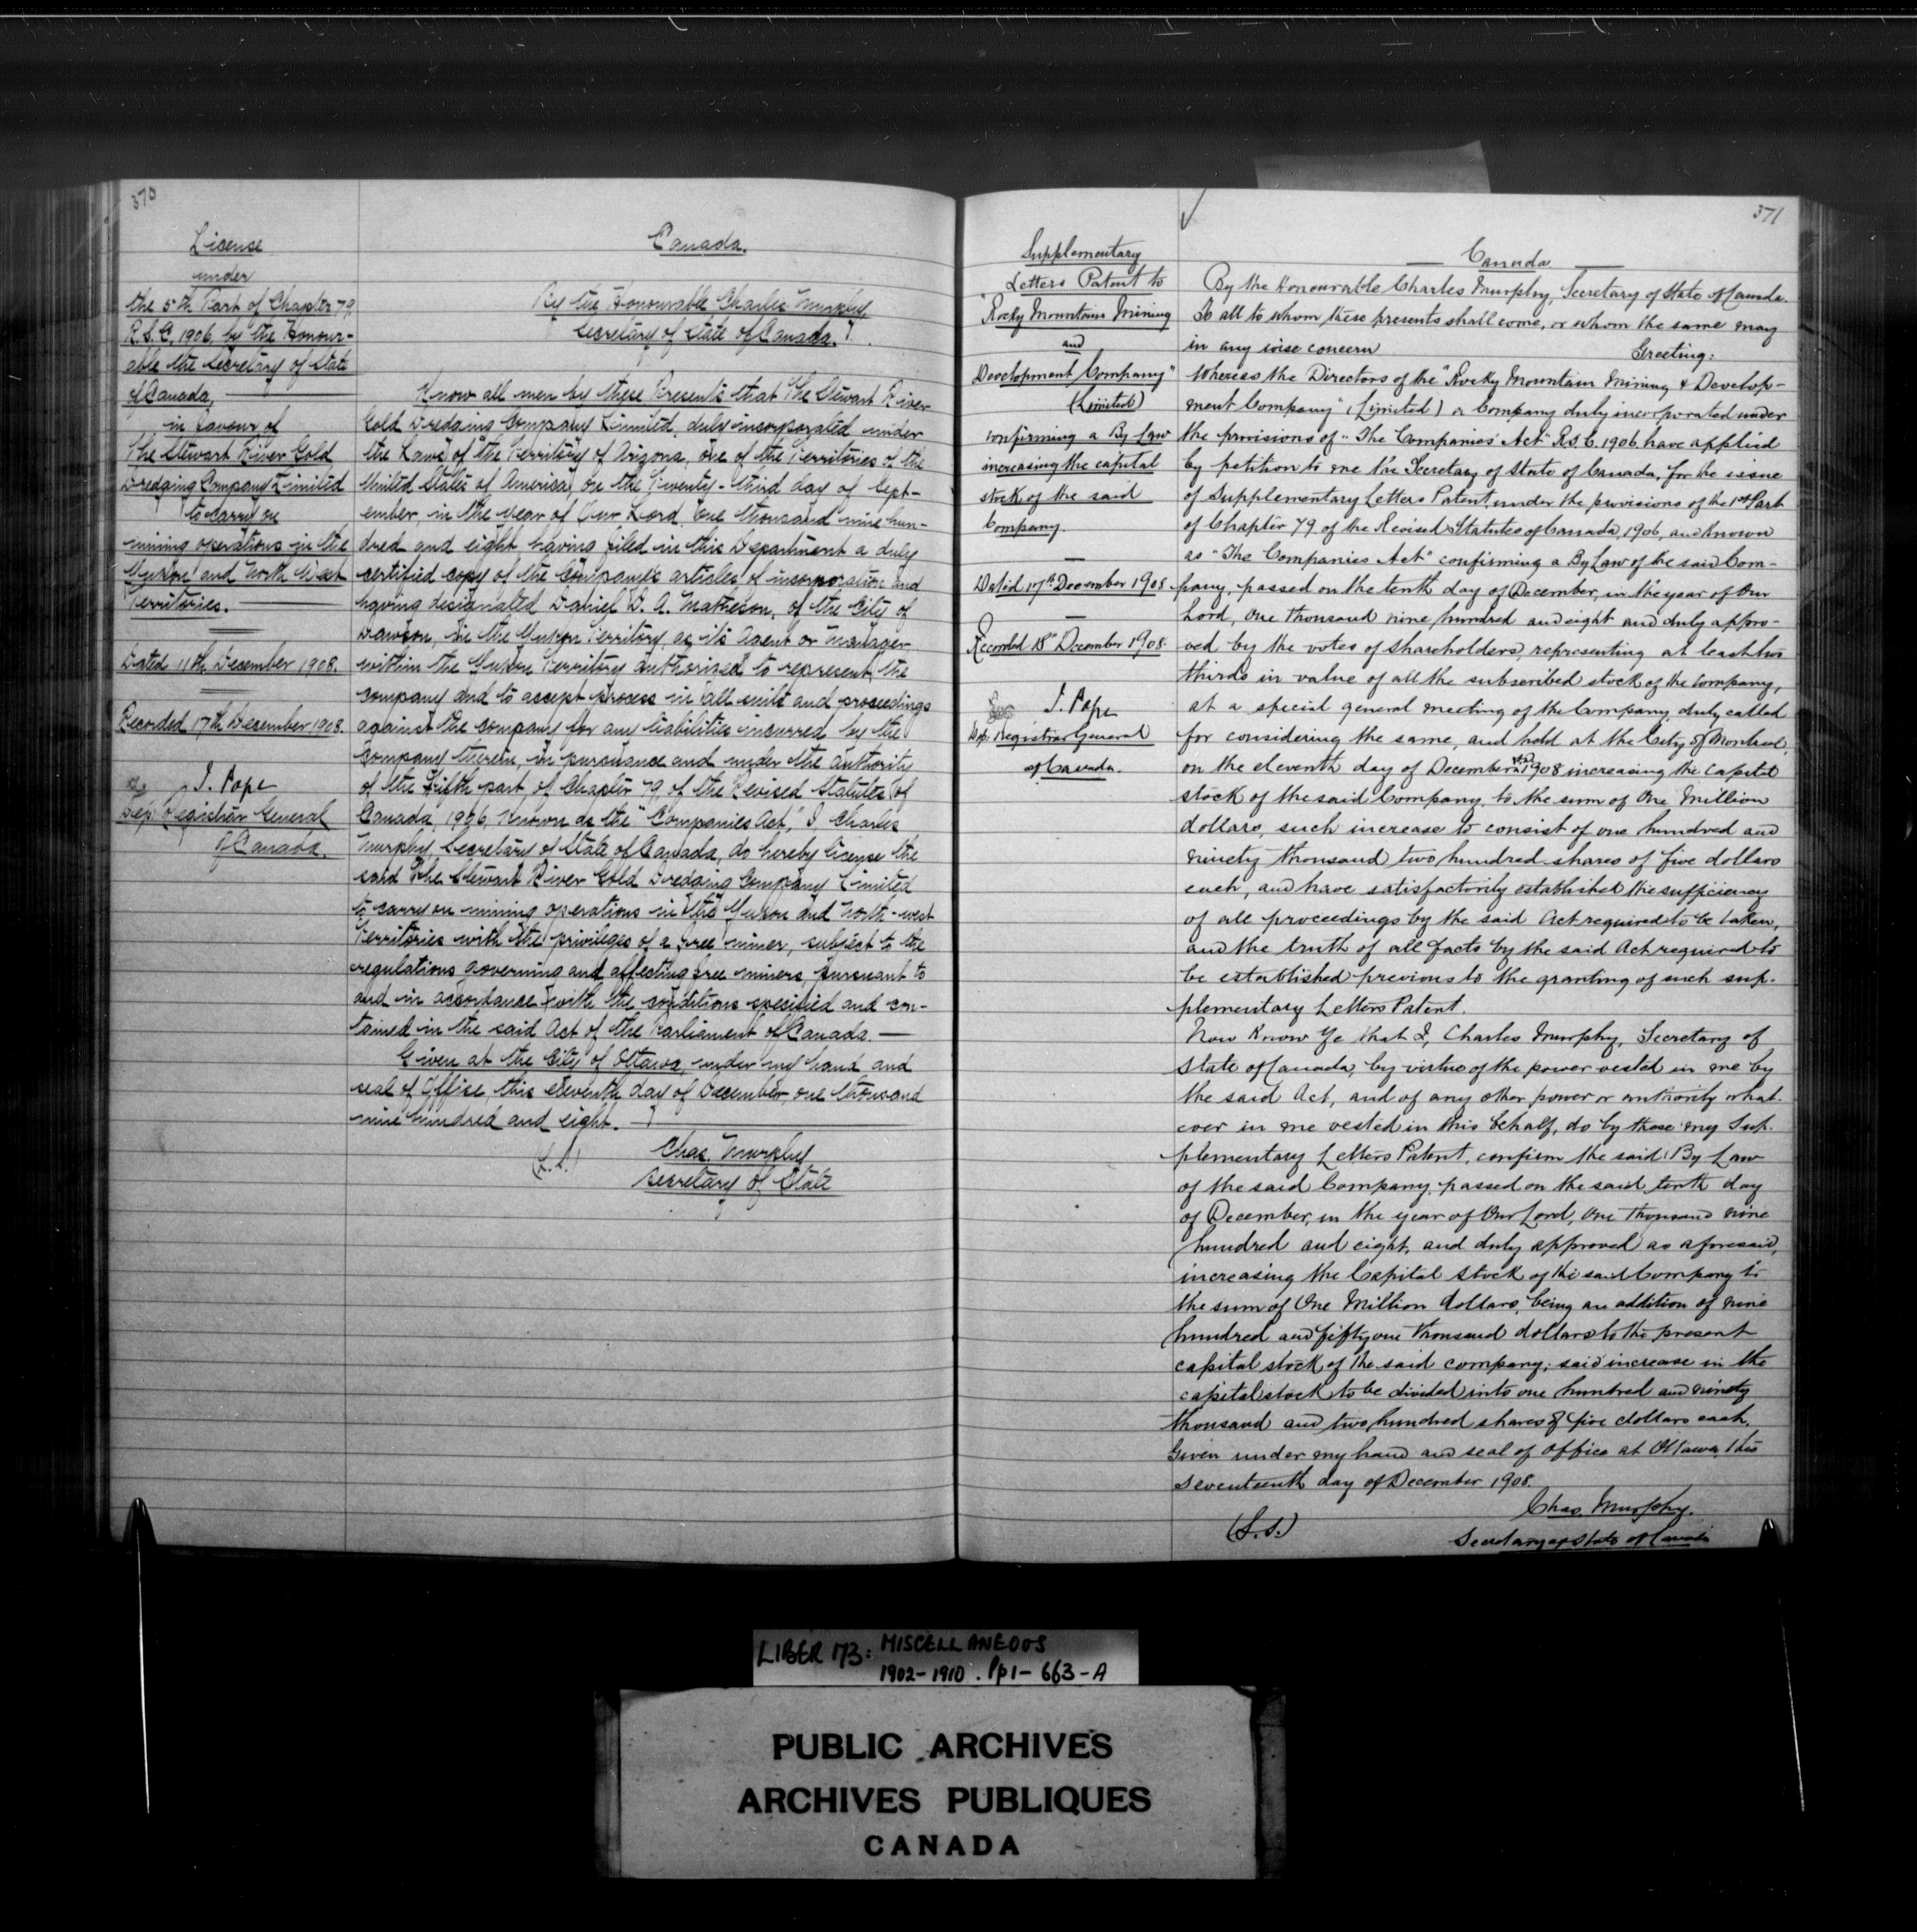 370
License
under
the 5th Part of Chapter 79,
R.S.C, 1906, by the Honour-
able the Secretary of State
of Canada,
in favour of
The Stewart River Gold
Dredging Company Limited
to carry on
mining operations in the
Yukon and North West
Territories.
Dated 11th December 1908.
Recorded 17th December 1908.
J. Pope
Dep. Registrar General
of Canada.
Canada.
By the Honourable Charles Murphy
Secretary of State of Canada.
Know all men by these Presents that The Stewart River
Gold Dredging Company Limited, duly incorporated under
the Laws of the Territory of Arizona, one of the Territories of the
United States of America, on the Twenty-third day of Sept-
ember, in the year of Our Lord, one thousand nine hun-
dred and eight, having filed in this Department a duly
certified copy of the Company's articles of incorporation and
having designated Daniel D. A. Matheson, of the City of
Dawson, in the Yukon Territory, as its Agent or Manager
within the Yukon Territory authorised to represent the
company and to accept process in all suits and proceedings
against the company for any liabilities incurred by the
Company therein, in pursuance and under the authority
of the Fifth part of Chapter 79, of the Revised Statutes of
Canada, 1906, Known as the "Companies Act," I, Charles
Murphy, Secretary of State of Canada, do hereby license the
said The Stewart River Gold Dredging Company Limited
to carry on mining operations in the Yukon and North-west
Territories with the privileges of a free miner, subject to the
regulations governing and affecting free miners, pursuant to
and in accordance with the conditions specified and con-
tained in the said Act of the Parliament of Canada.
Given at the City of Ottawa, under my hand and
seal of Office, this eleventh day of December, one thousand
nine hundred and eight.
(L.S.)
Chas. Murphy
Secretary of State
371
Supplementary
Letters Patent to
"Rocky Mountain Mining
and
Development Company"
(Limited)
confirming a By Law
increasing the capital
stock of the said
Company.
Dated 17th December 1908.
Recorded 18th December 1908.
J. Pope
Dep. Registrar General
of Canada.
Canada
By the Honourable Charles Murphy, Secretary of State of Canada.
To all to whom these presents shall come, or whom the same may
in any wise concern Greeting:
Whereas the Directors of the "Rocky Mountain Mining & Develop-
ment Company" (Limited) a Company duly incorporated under
the provisions of "The Companies Act" R.S.C. 1906, have applied
by petition to me the Secretary of State of Canada, for the issue
of Supplementary Letters Patent, under the provisions of the 1st Part
of Chapter 79 of the Revised Statutes of Canada, 1906, and known
as "The Companies Act" confirming a By Law of the said Com-
pany, passed on the tenth day of December, in the year of Our
Lord, One thousand nine hundred and eight and duly appro-
ved by the votes of shareholders, representing at least two
thirds in value of all the subscribed stock of the Company,
at a special general meeting of the Company, duly called
for considering the same, and held at the City of Montreal,
on the eleventh day of December 1908 increasing the capital
stock of the said Company, to the sum of One Million
dollars, such increase to consist of one hundred and
ninety thousand two hundred shares of five dollars
each, and have satisfactorily established the sufficiency
of all proceedings by the said Act required to be taken,
and the truth of all facts by the said Act required to
be established previous to the granting of such sup-
plementary Letters Patent.
Now Know Ye that I, Charles Murphy, Secretary of
State of Canada, by virtue of the power vested in me by
the said Act, and of any other power or authority what-
ever in me vested in this behalf, do by these my Sup-
plementary Letters Patent, confirm the said By Law
of the said Company, passed on the said tenth day
of December, in the year of Our Lord, One thousand nine
hundred and eight, and duly approved as aforesaid,
increasing the Capital Stock of the said Company to
the sum of One Million dollars, being an addition of nine
hundred and fifty one thousand dollars to the present
capital stock of the said company; said increase in the
capital stock to be divided into one hundred and ninety
thousand and two hundred shares of five dollars each.
Given under my hand and seal of office at Ottawa, this
seventeenth day of December 1908.
(L.S.)
Chas. Murphy.
Secretary of State of Canada
LIBER 173: MISCELLANEOUS
1902-1910. Pp1-663-A
PUBLIC ARCHIVES
ARCHIVES PUBLIQUES
CANADA